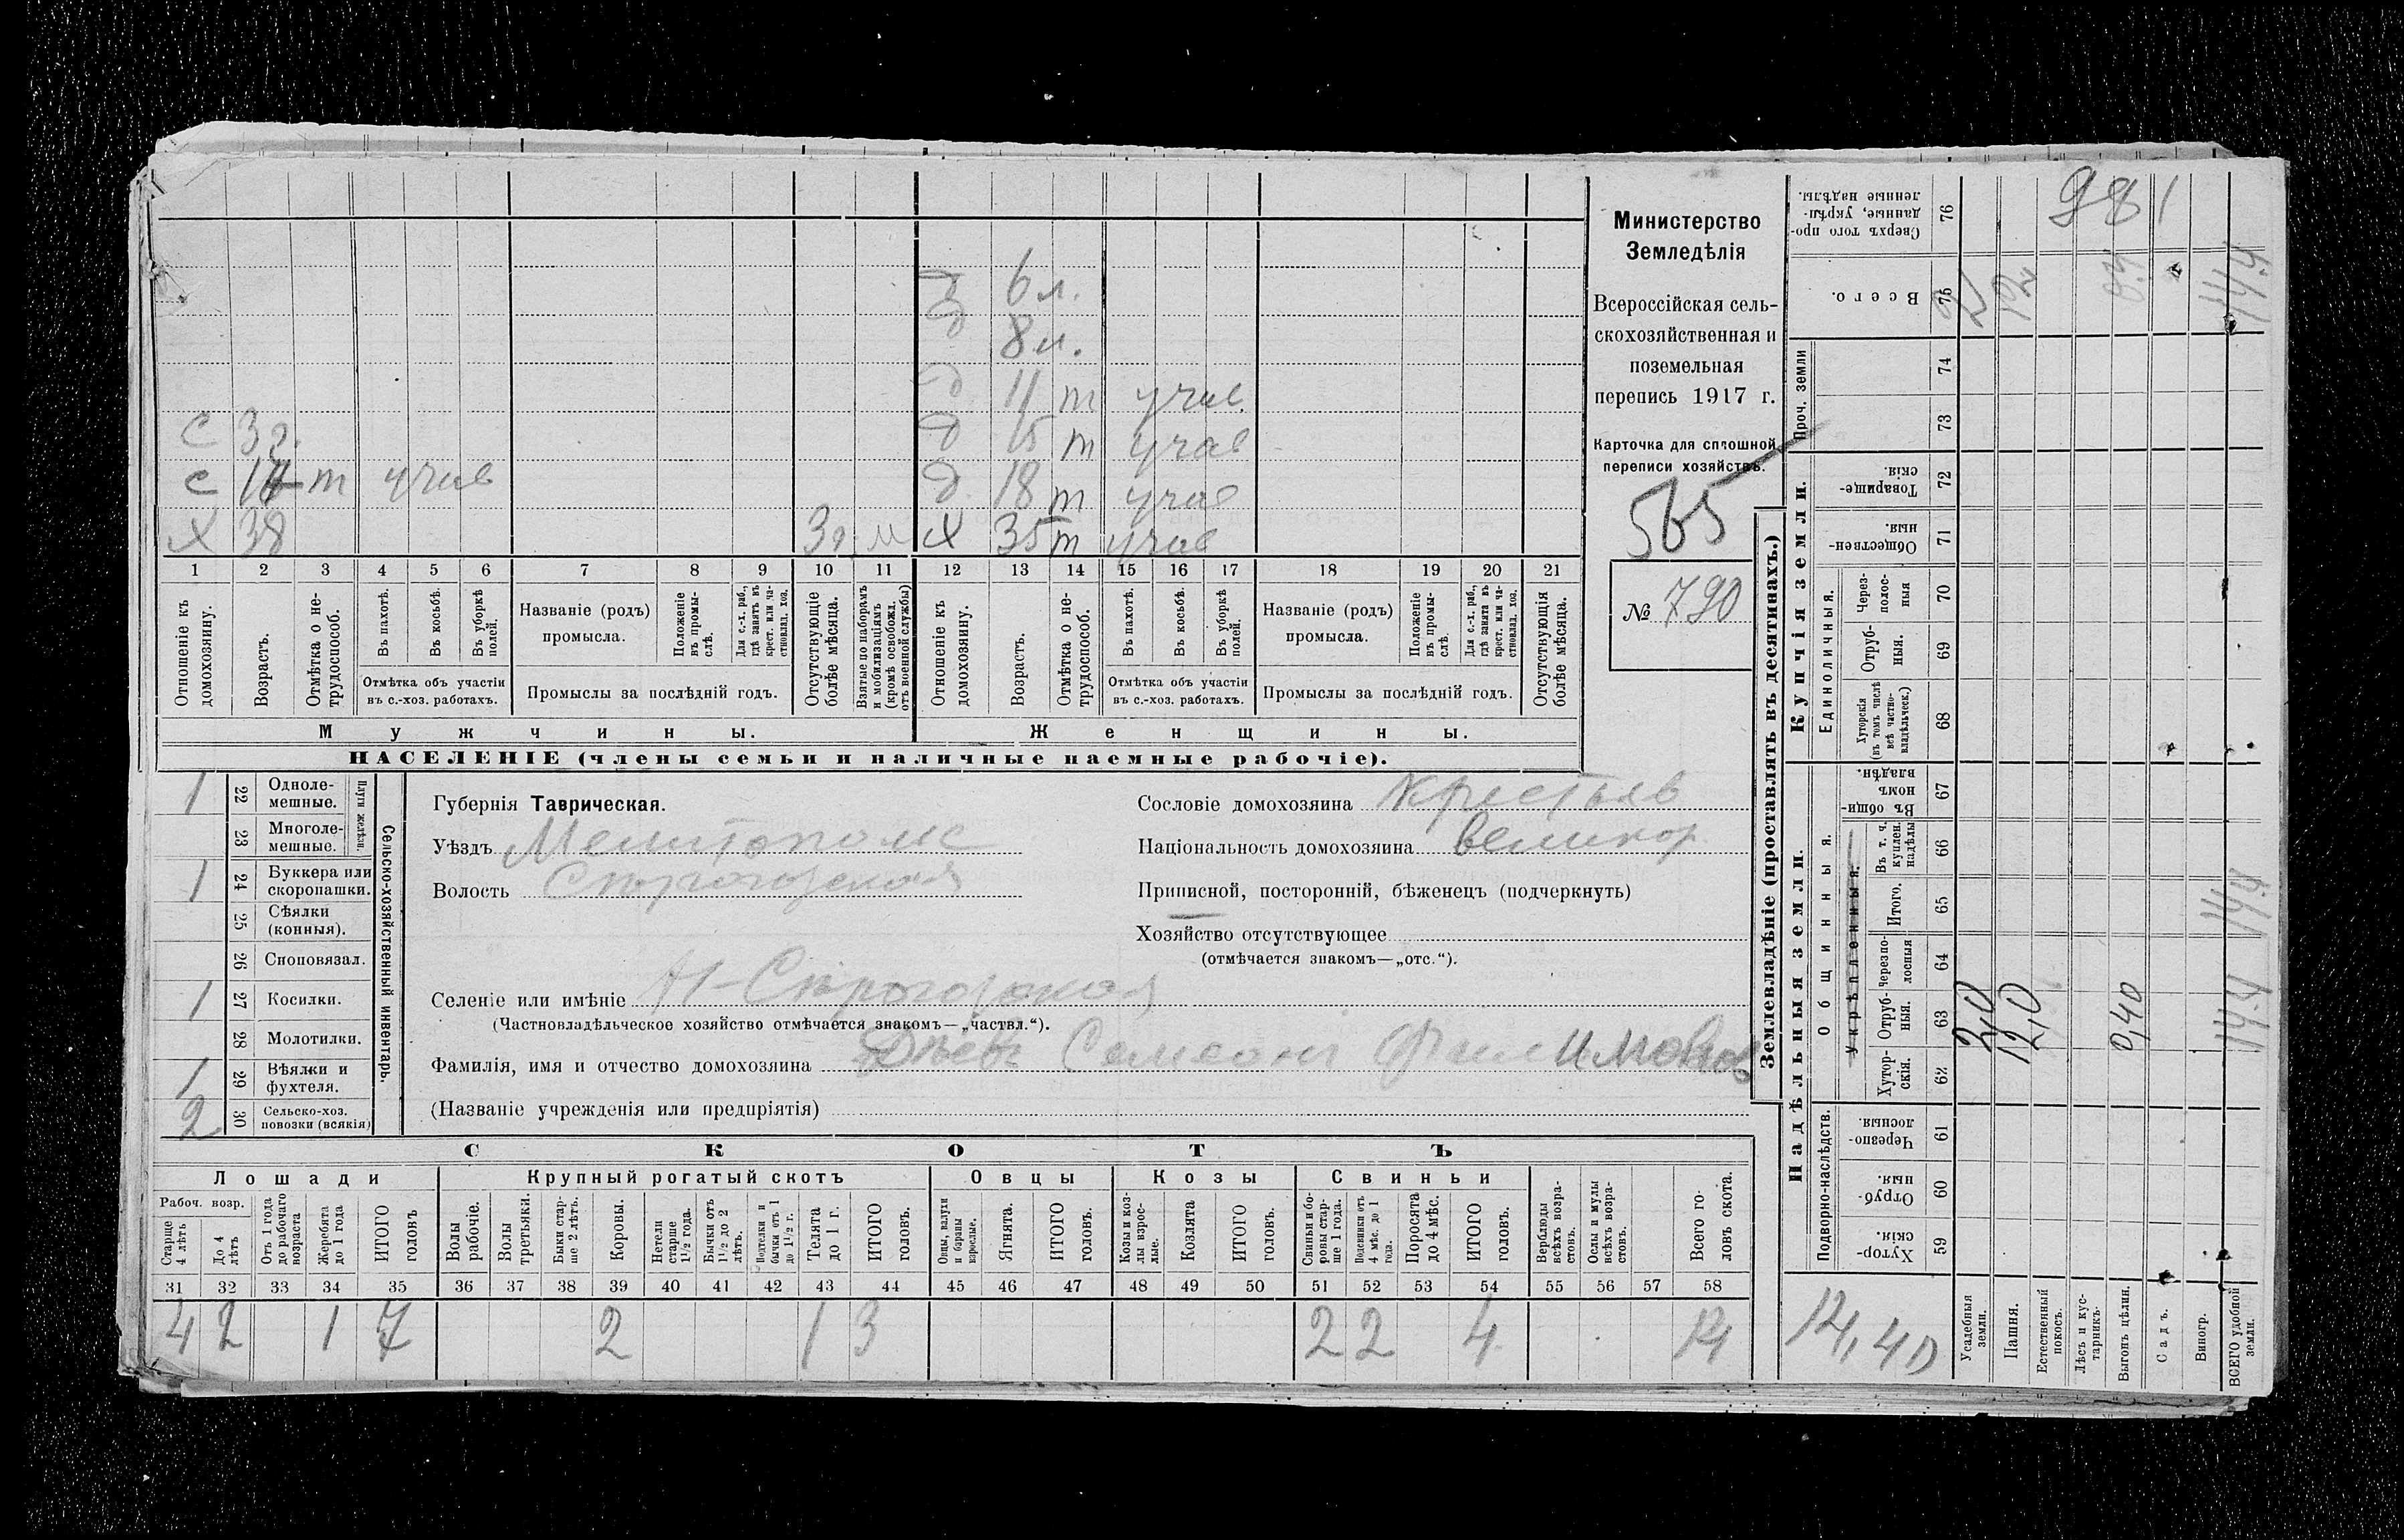 д 6 л.
д 8 л.
д 11 т учав
с 3 г. д 15 т учав
с 14 т учав д 18 т учав
х 38 3 г. м х 35 т учав
1 2 3 4 5 6 7 8 9 10 11 12 13 14 15 16 17 18 19 20 21
Отношеніе къ домохозяину.
Возрастъ.
Отмѣтка о нетрудоспособ.
Въ пахотѣ.
Въ косьбѣ.
Въ уборкѣ полей.
Отмѣтка объ участіи въ с.-хоз. работахъ.
Названіе (родъ) промысла.
Положеніе въ промыслѣ.
Для с.-х. раб., гдѣ занятъ въ крест. или частновлад. хоз.
Промыслы за послѣдній годъ.
Отсутствующіе болѣе мѣсяца.
Взятые по наборамъ и мобилизаціямъ (кромѣ освобожд. отъ военной службы)
Отношеніе къ домохозяину.
Возрастъ.
Отмѣтка о нетрудоспособ.
Въ пахотѣ.
Въ косьбѣ.
Въ уборкѣ полей.
Отмѣтка объ участіи въ с.-хоз. работахъ.
Названіе (родъ) промысла.
Положеніе въ промыслѣ.
Для с.-х. раб., гдѣ занята въ крест. или частновлад. хоз.
Промыслы за послѣдній годъ.
Отсутствующія болѣе мѣсяца.
Мужчины. Женщины.
НАСЕЛЕНІЕ (члены семьи и наличные наемные рабочіе).
Министерство
Земледѣлія
Всероссійская сель-
скохозяйственная и
поземельная
перепись 1917 г.
Карточка для сплошной
переписи хозяйствъ.
565
№ 790
Сельско-хозяйственный инвентарь.
Плуги желѣзн.
1 22 Одноле-мешные.
23 Многоле-мешные.
1 24 Буккера или скоропашки.
25 Сѣялки (конныя).
26 Сноповязал.
1 27 Косилки.
28 Молотилки.
1 29 Вѣялки и фухтеля.
2 30 Сельско-хоз. повозки (всякія)
Губернія Таврическая.
Уѣздъ Мелитопольс
Волость Сѣрогозская
Селеніе или имѣніе Н-Сѣрогозская
(Частновладѣльческое хозяйство отмѣчается знакомъ—„частвл.“).
Фамилія, имя и отчество домохозяина Семеонъ Филимонов
(Названіе учрежденія или предпріятія)
Сословіе домохозяина Крестьяв
Національность домохозяина великор
Приписной, посторонній, бѣженецъ (подчеркнуть)
Хозяйство отсутствующее
(отмѣчается знакомъ—„отс.“).
СКОТЪ
Лошади Крупный рогатый скотъ Овцы Козы Свиньи
Рабоч. возр.
Старше 4 лѣтъ
До 4 лѣтъ
Отъ 1 года до рабочаго возраста
Жеребята до 1 года
ИТОГО головъ
Волы рабочіе.
Волы третьяки.
Быки старше 2 лѣтъ.
Коровы.
Нетели старше 1½ года.
Бычки отъ 1½ до 2 лѣтъ.
Подтелки и бычки отъ 1 до 1½ г.
Телята до 1 г.
ИТОГО головъ.
Овцы, валухи и бараны взрослые.
Ягнята.
ИТОГО головъ.
Козы и козлы взрослые.
Козлята
ИТОГО головъ.
Свиньи и боровы старше 1 года.
Подсвинки отъ 4 мѣс. до 1 года.
Поросята до 4 мѣс.
ИТОГО головъ.
Верблюды всѣхъ возрастовъ.
Ослы и мулы всѣхъ возрастовъ.
Всего головъ скота.
31 32 33 34 35 36 37 38 39 40 41 42 43 44 45 46 47 48 49 50 51 52 53 54 55 56 57 58
4 2 1 7 2 1 3 2 2 4 14
Землевладѣніе (проставлять въ десятинахъ.)
Надѣльныя земли. Купчія земли. Проч. земли
Подворно-наслѣдств.
Общинныя.
Укрѣпленныя.
Единоличныя.
Хуторскія. 59
Отрубныя. 60
Черезполосныя. 61
Хуторскія. 62
Отрубныя. 63
Черезполосныя 64
Итого. 65
Въ т. ч. куплен. надѣлы 66
Въ общинномъ владѣн. 67
Хуторскія (въ томъ числѣ всѣ частновладѣльческ.) 68
Отрубныя. 69
Черезполосныя 70
Общественныя. 71
Товарищескія. 72
73
74
Всего. 75
Сверхъ того проданные, укрѣпленные надѣлы. 76
14,40
Усадебныя земли. 2,0 2
Пашня. 12,0 12
Естественный покосъ.
Лѣсъ и кустарникъ.
Выгонъ цѣлин. 0,40 0.4
Садъ.
Виногр.
ВСЕГО удобной земли. 14.4 14.4 14.4
981